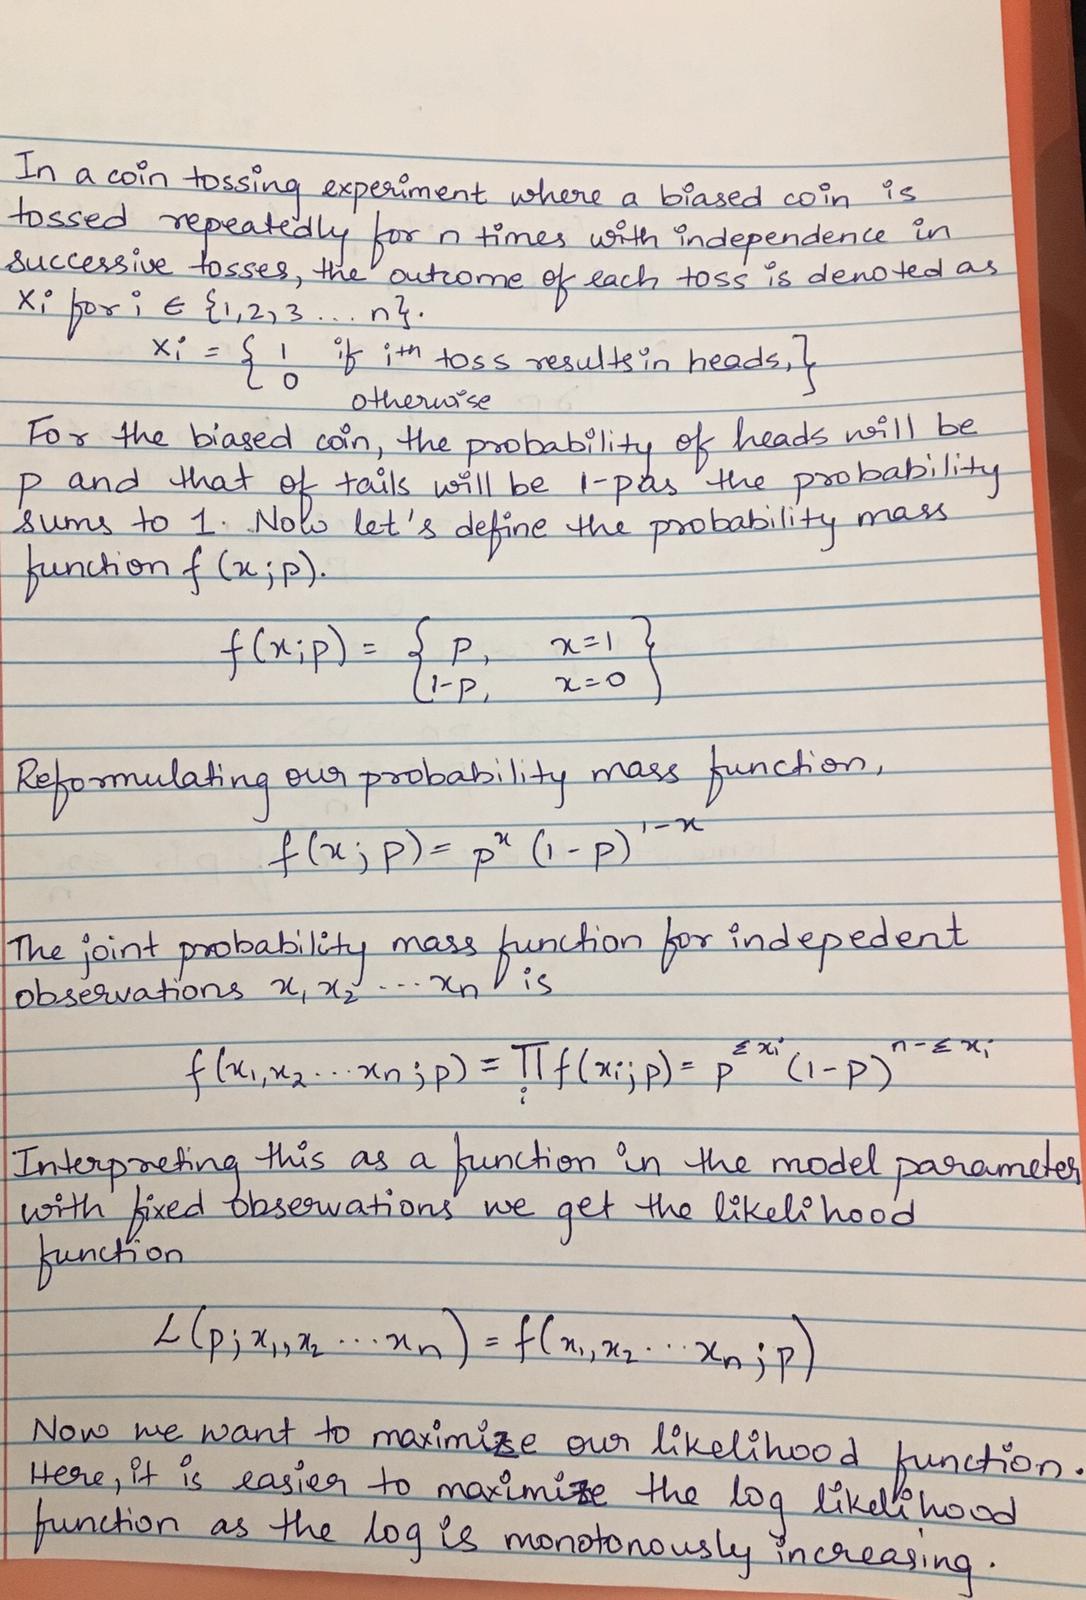 In a coin tossing experiment where a biased coin is
tossed repeatedly for n times with independence in
successive tosses, the outcome of each toss is denoted as
Xi for i ∈ {1,2,3 ... n}.
Xi = { 1 if ith toss results in heads, }
0 otherwise
For the biased coin, the probability of heads will be
p and that of tails will be 1-p as the probability
sums to 1. Now let's define the probability mass
function f(x;p).
f(x;p) = { p, x=1 }
1-p, x=0
Reformulating our probability mass function,
f(x;p) = p^x (1-p)^{1-x}
The joint probability mass function for indepedent
observations x₁ x₂ ... xn is
f(x₁,x₂...xn;p) = ∏_i f(xi;p) = p^{Σxi} (1-p)^{n-Σxi}
Interpreting this as a function in the model parameter
with fixed observations we get the likelihood
function
L(p; x₁, x₂ ... xn) = f(x₁, x₂ ... xn; p)
Now we want to maximize our likelihood function.
Here, it is easier to maximize the log likelihood
function as the log is monotonously increasing.